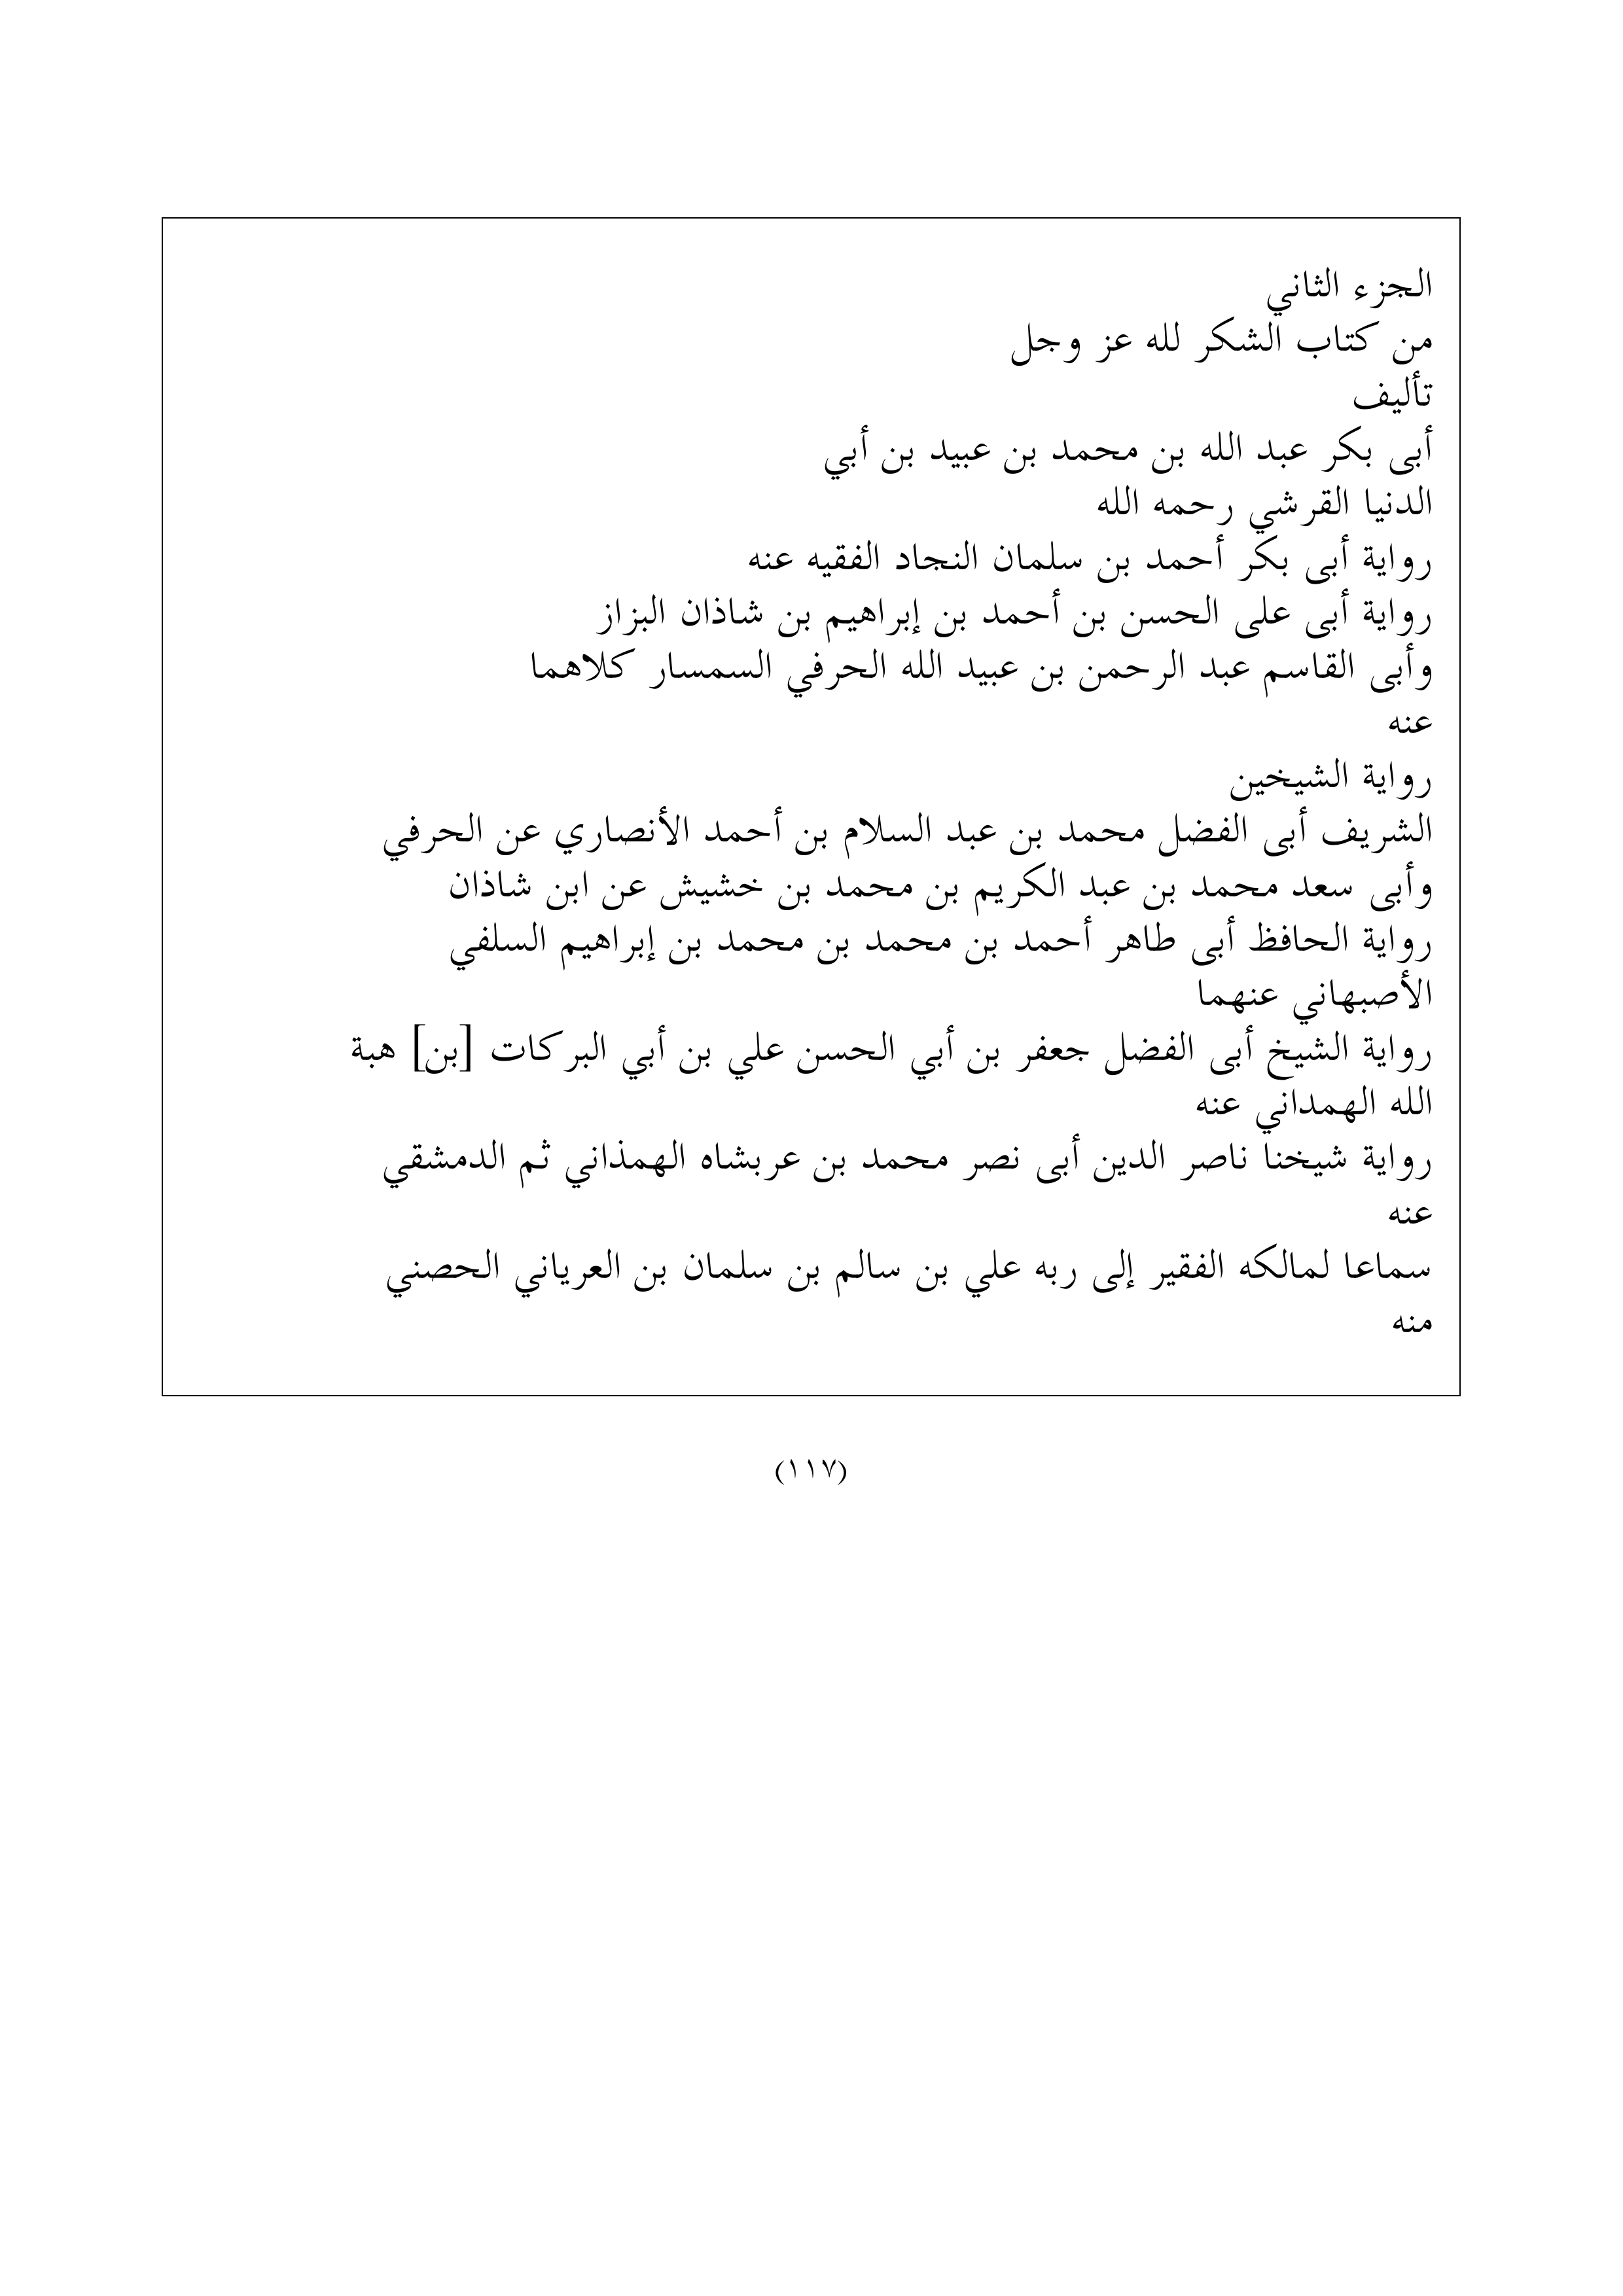 الجزء الثاني
من كتاب الشكر لله عز وجل
تأليف
أبى بكر عبد الله بن محمد بن عبيد بن أبي
الدنيا القرشي رحمه الله
رواية أبى بكر أحمد بن سلمان النجاد الفقيه عنه
رواية أبى على الحسن بن أحمد بن إبراهيم بن شاذان البزاز
وأبى القاسم عبد الرحمن بن عبيد الله الحرفي السمسار كلاهما
عنه
رواية الشيخين
الشريف أبى الفضل محمد بن عبد السلام بن أحمد الأنصاري عن الحرفي
وأبى سعد محمد بن عبد الكريم بن محمد بن خشيش عن ابن شاذان
رواية الحافظ أبى طاهر أحمد بن محمد بن محمد بن إبراهيم السلفي
الأصبهاني عنهما
رواية الشيخ أبى الفضل جعفر بن أبي الحسن علي بن أبي البركات [بن] هبة
الله الهمداني عنه
رواية شيخنا ناصر الدين أبى نصر محمد بن عربشاه الهمذاني ثم الدمشقي
عنه
سماعا لمالكه الفقير إلى ربه علي بن سالم بن سلمان بن العرياني الحصني
منه
(١١٧)